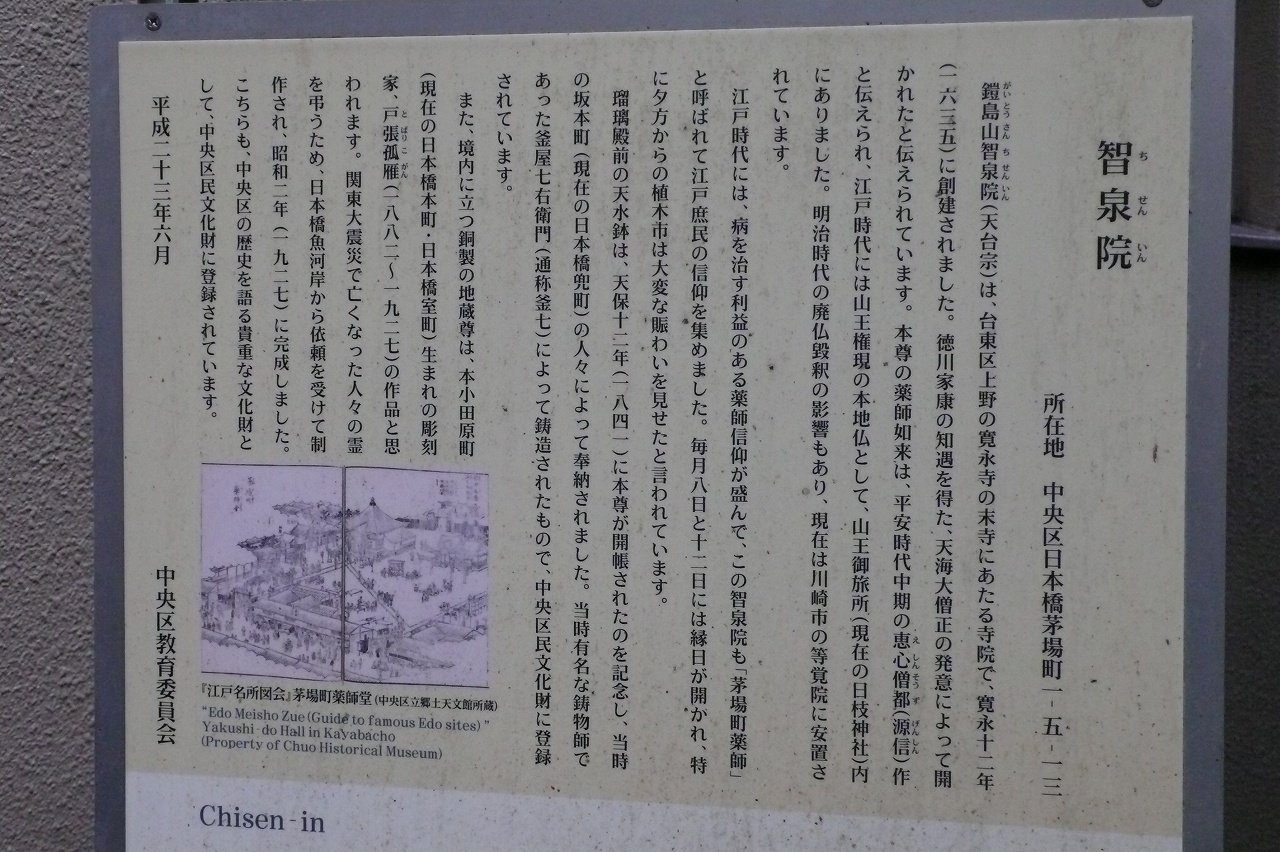 智泉院
ちせんいん
所在地　中央区日本橋茅場町一-五-一三
鎧島山智泉院(天台宗)は、台東区上野の寛永寺の末寺にあたる寺院で、寛永十二年
がいとうさんちせんいん
(一六三五)に創建されました。徳川家康の知遇を得た、天海大僧正の発意によって開
かれたと伝えられています。本尊の薬師如来は、平安時代中期の恵心僧都(源信)作
えしんそうず げんしん
と伝えられ、江戸時代には山王権現の本地仏として、山王御旅所(現在の日枝神社)内
にありました。明治時代の廃仏毀釈の影響もあり、現在は川崎市の等覚院に安置さ
れています。
江戸時代には、病を治す利益のある薬師信仰が盛んで、この智泉院も「茅場町薬師」
と呼ばれて江戸庶民の信仰を集めました。毎月八日と十二日には縁日が開かれ、特
に夕方からの植木市は大変な賑わいを見せたと言われています。
瑠璃殿前の天水鉢は、天保十二年(一八四一)に本尊が開帳されたのを記念し、当時
の坂本町(現在の日本橋兜町)の人々によって奉納されました。当時有名な鋳物師で
あった釜屋七右衛門(通称釜七)によって鋳造されたもので、中央区民文化財に登録
されています。
また、境内に立つ銅製の地蔵尊は、本小田原町
(現在の日本橋本町・日本橋室町)生まれの彫刻
家、戸張孤雁(一八八二～一九二七)の作品と思
とばりこがん
われます。関東大震災で亡くなった人々の霊
を弔うため、日本橋魚河岸から依頼を受けて制
作され、昭和二年(一九二七)に完成しました。
こちらも、中央区の歴史を語る貴重な文化財と
して、中央区民文化財に登録されています。
平成二十三年六月
中央区教育委員会
『江戸名所図会』茅場町薬師堂(中央区立郷土天文館所蔵)
"Edo Meisho Zue (Guide to famous Edo sites)"
Yakushi-do Hall in Kayabacho
(Property of Chuo Historical Museum)
Chisen-in